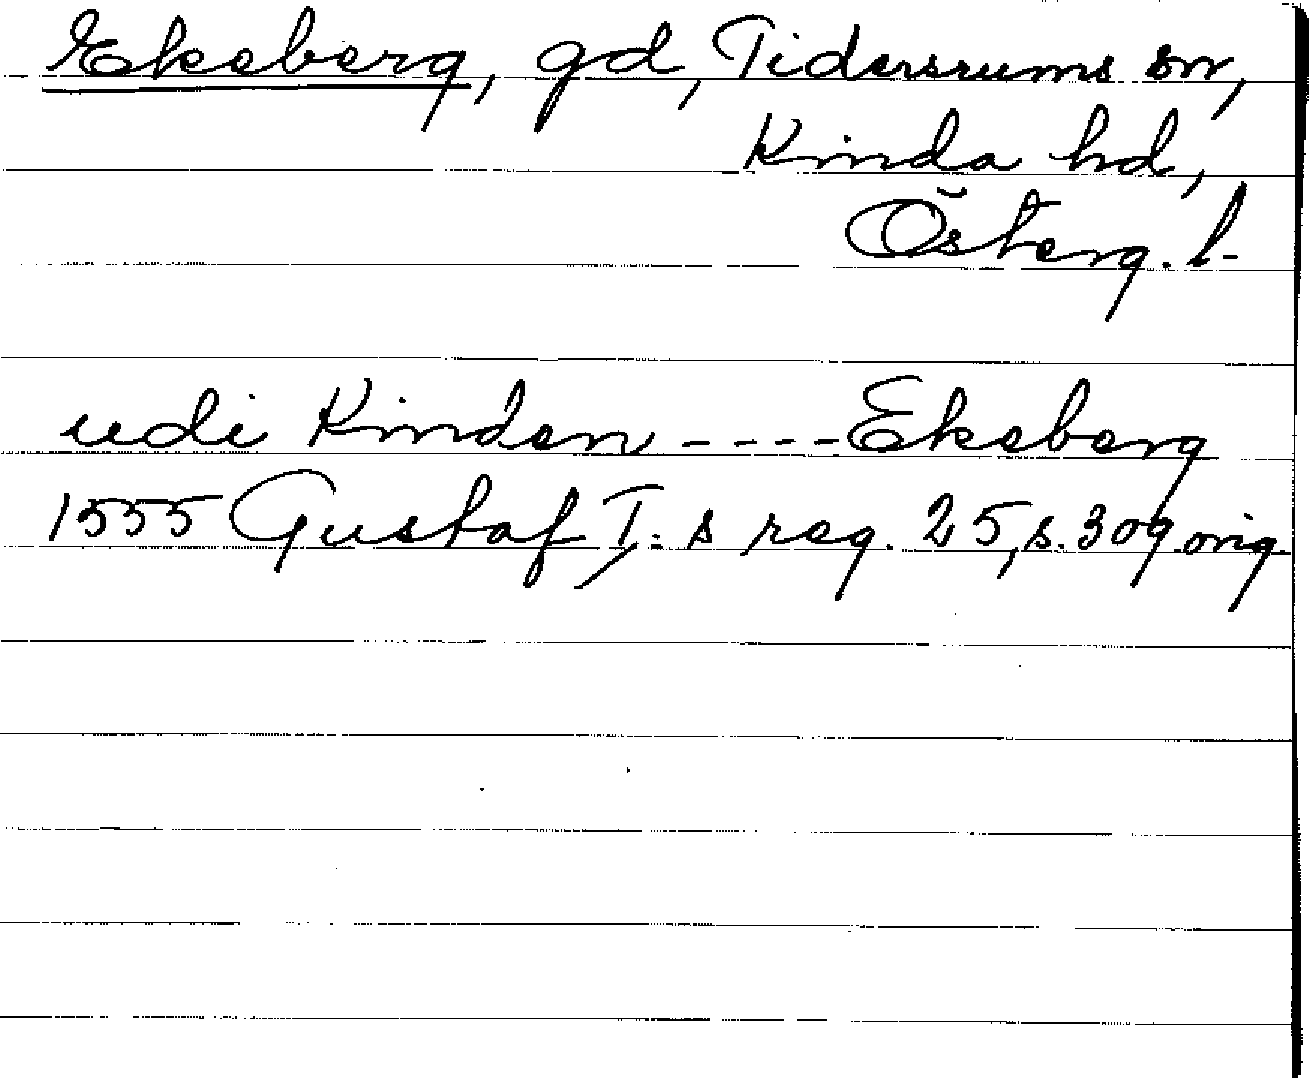 Ekeberg, gd, Tidersrums sn,
Kinda hd,
Österg. l.
udi Kinden ---- Ekeberg
1555 Gustaf I: s reg. 25, s. 309 orig.